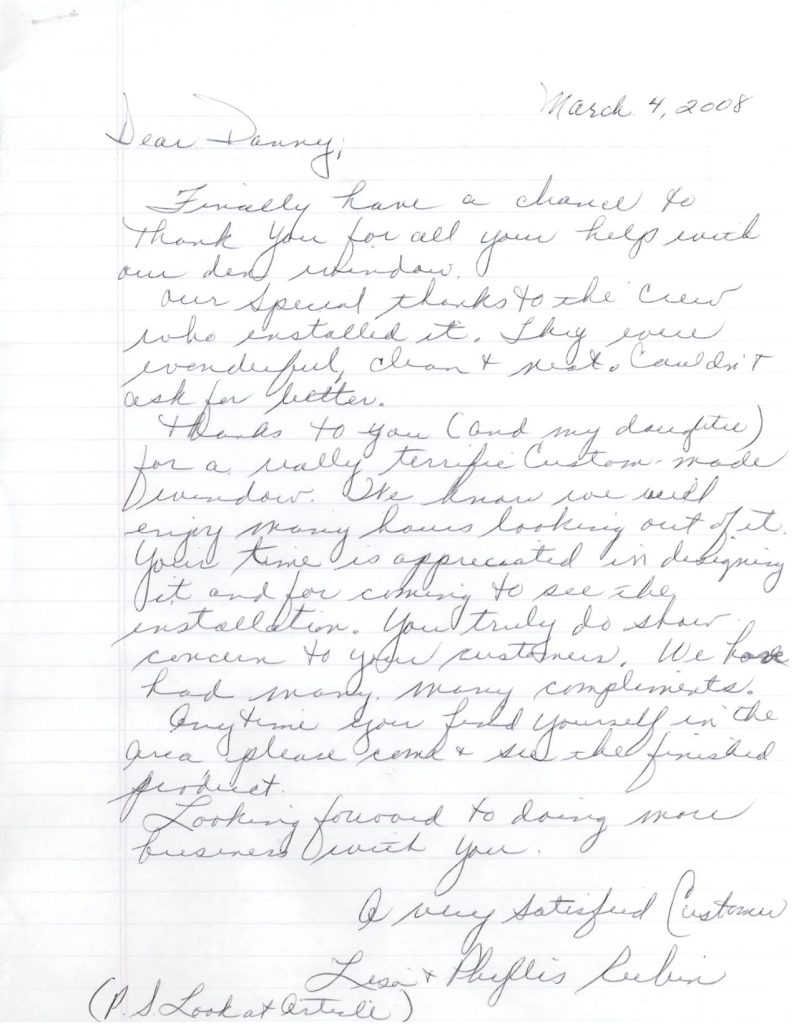 March 4, 2008
Dear Danny,
Finally have a chance to
thank you for all your help with
our den window.
Our special thanks to the crew
who installed it. They were
wonderful, clean & neat. Couldn't
ask for better.
Thanks to you (and my daughter)
for a really terrific Custom-made
window. We know we will
enjoy many hours looking out of it.
Your time is appreciated in designing
it and for coming to see the
installation. You truly do show
concern to your customers. We have
had many, many compliments.
Anytime you find yourself in the
area please come & see the finished
product.
Looking forward to doing more
business with you.
A very Satisfied Customer
Lisa & Phyllis Rubin
(P.S Look at Article)